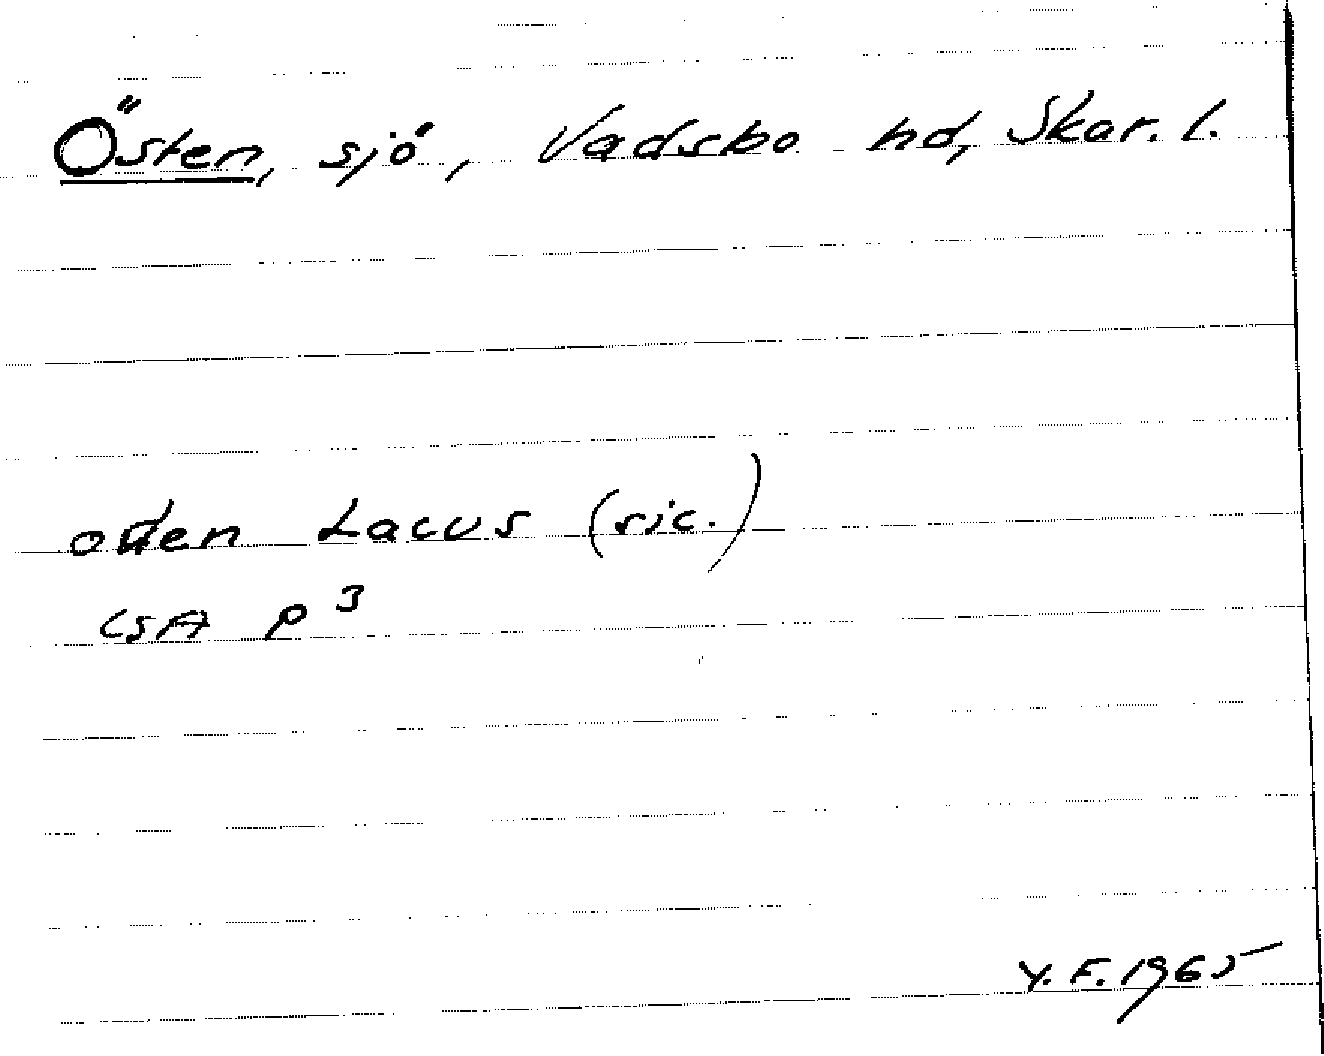 Östen, sjö, Vadsbo hd, Skar. l.
Lacus (sic.)
CSA p 3
Y. F. 1965